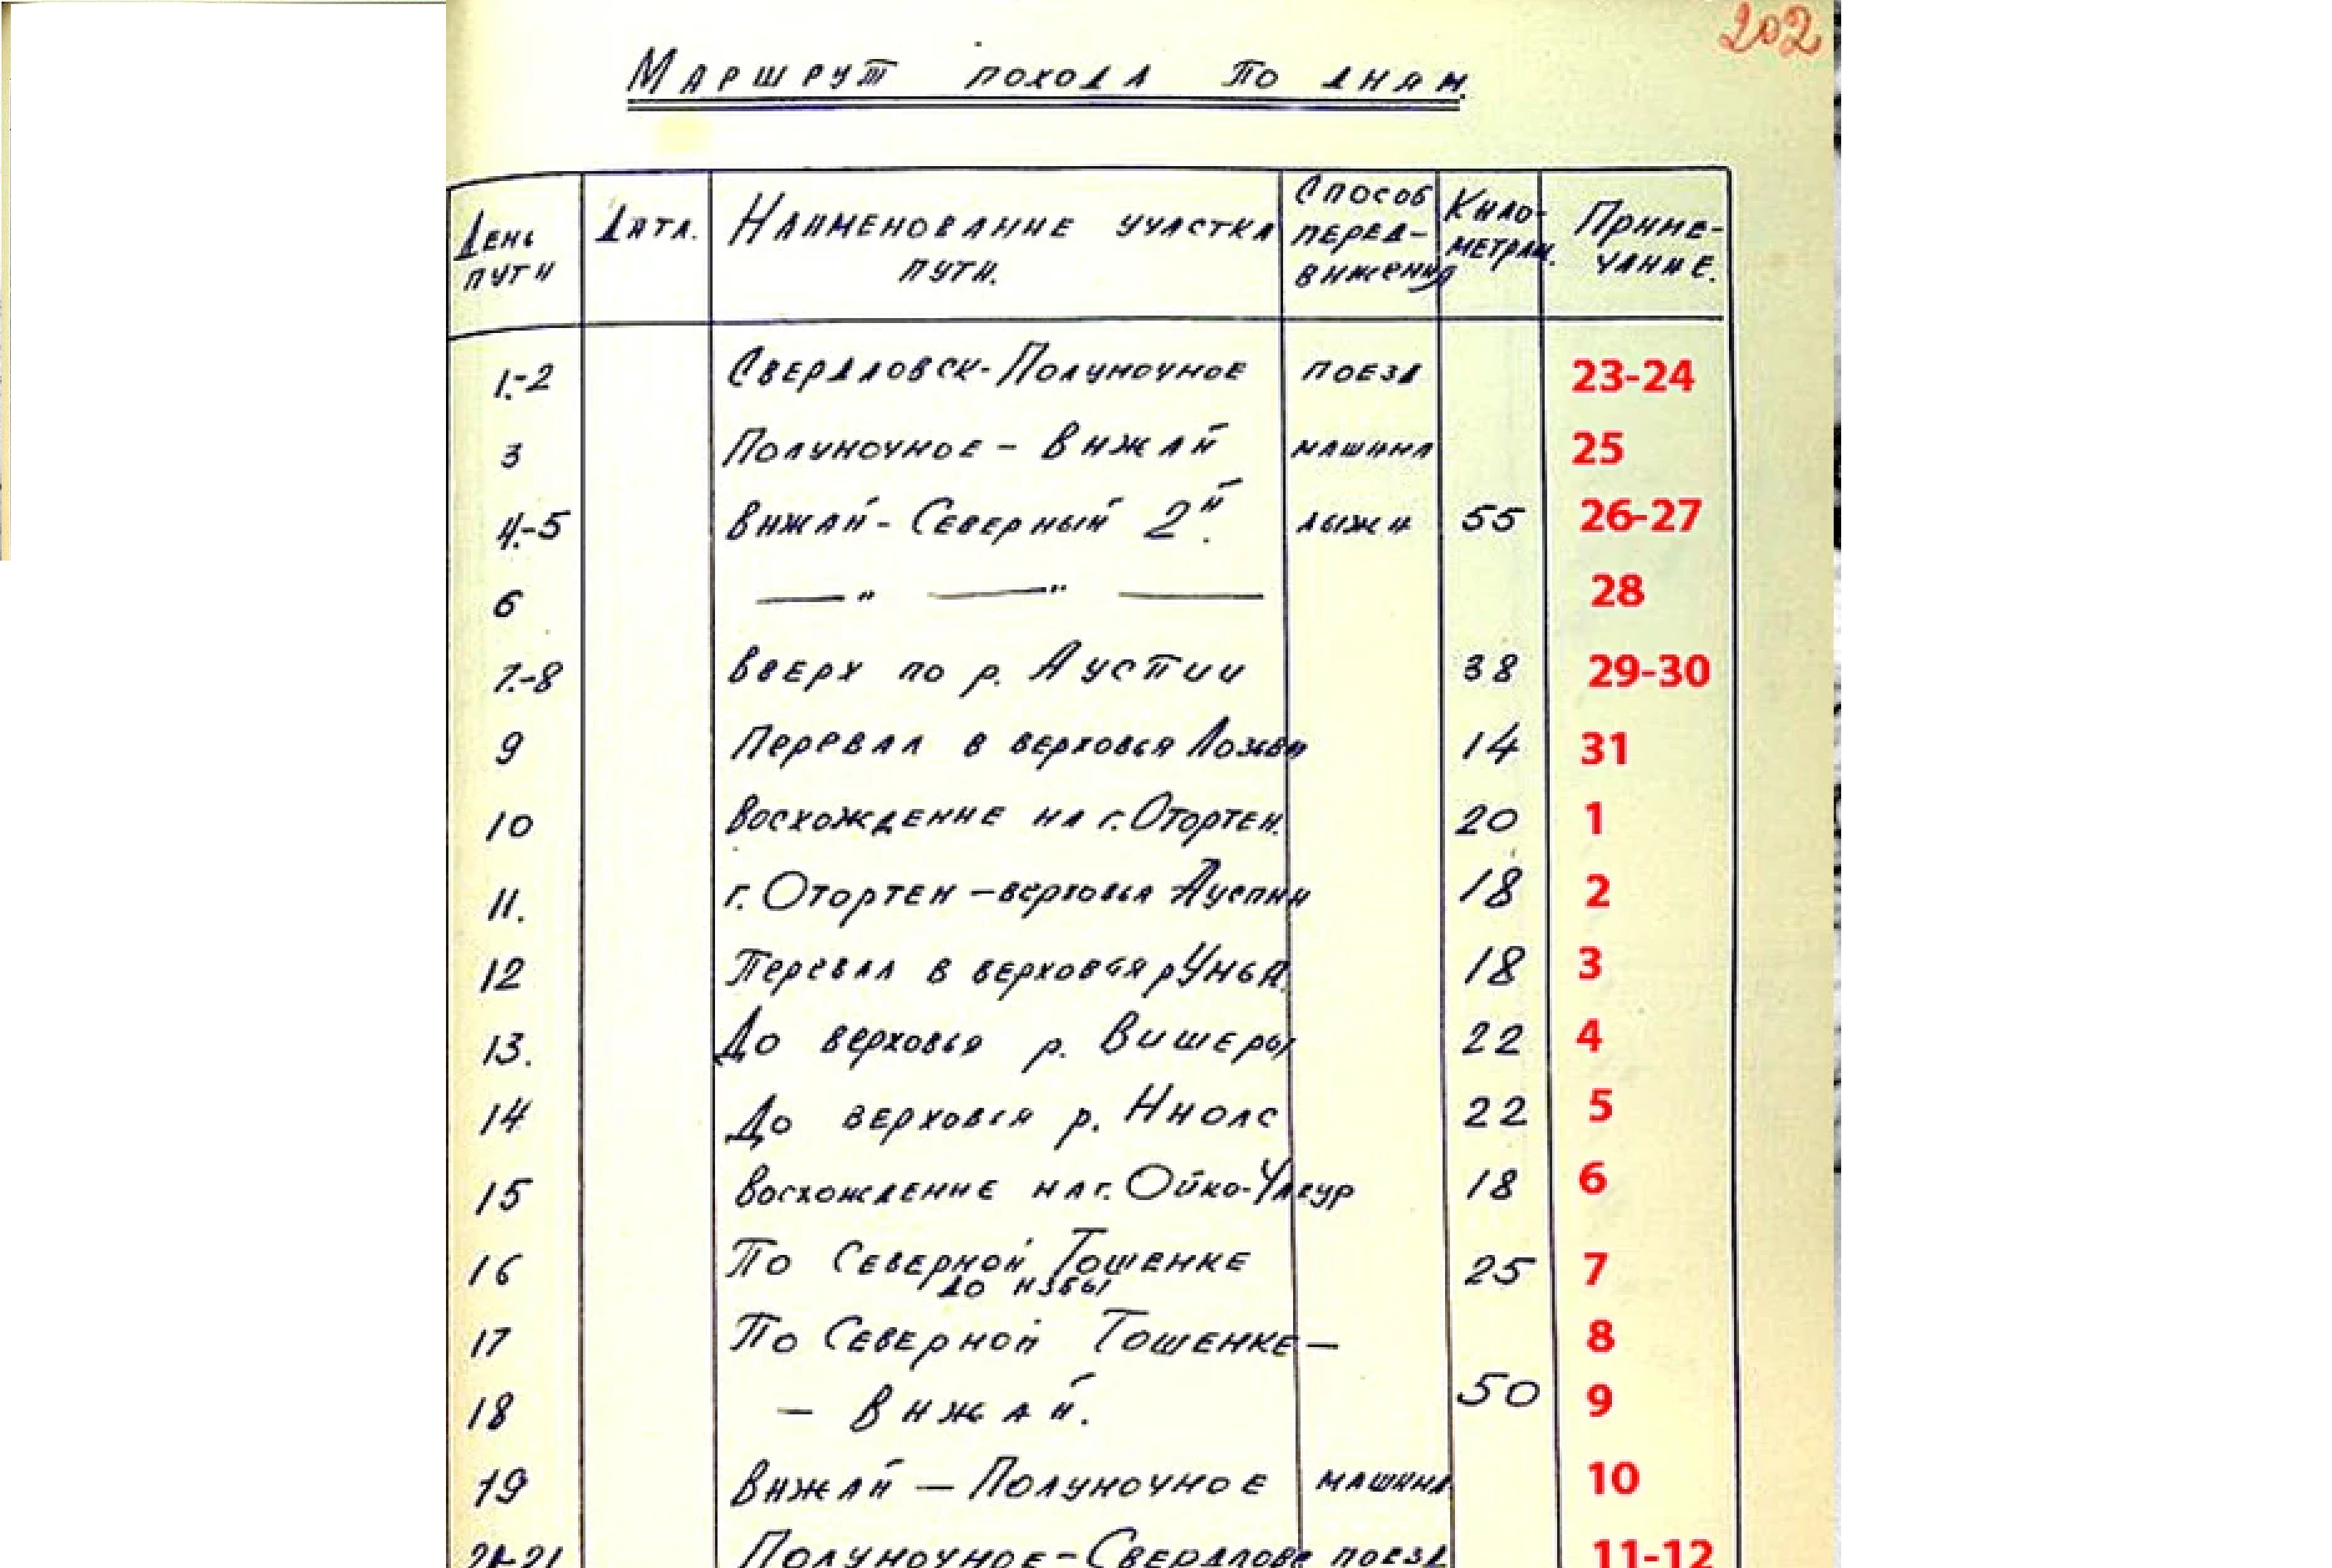 202
Маршрут похода по дням.
День пути Дата. Наименование участка пути. Способ передвижения Километраж. Примечание.
1.-2 Свердловск-Полуночное поезд 23-24
3 Полуночное - Вижай машина 25
4.-5 Вижай - Северный 2й. лыжи 55 26-27
6 — " — " — 28
7.-8 Вверх по р. Ауспии 38 29-30
9 Перевал в верховья Лозьвы 14 31
10 Восхождение на г. Отортен. 20 1
11. г. Отортен - верховья Ауспии 18 2
12 Перевал в верховья р Унья. 18 3
13. До верховья р. Вишеры 22 4
14 До верховья р. Ниолс 22 5
15 Восхождение на г. Ойко-Чакур 18 6
16 По Северной Тошемке до избы 25 7
17 По Северной Тошемке — 8
18 — Вижай. 50 9
19 Вижай — Полуночное машина 10
20-21 Полуночное - Свердловс поезд 11-12